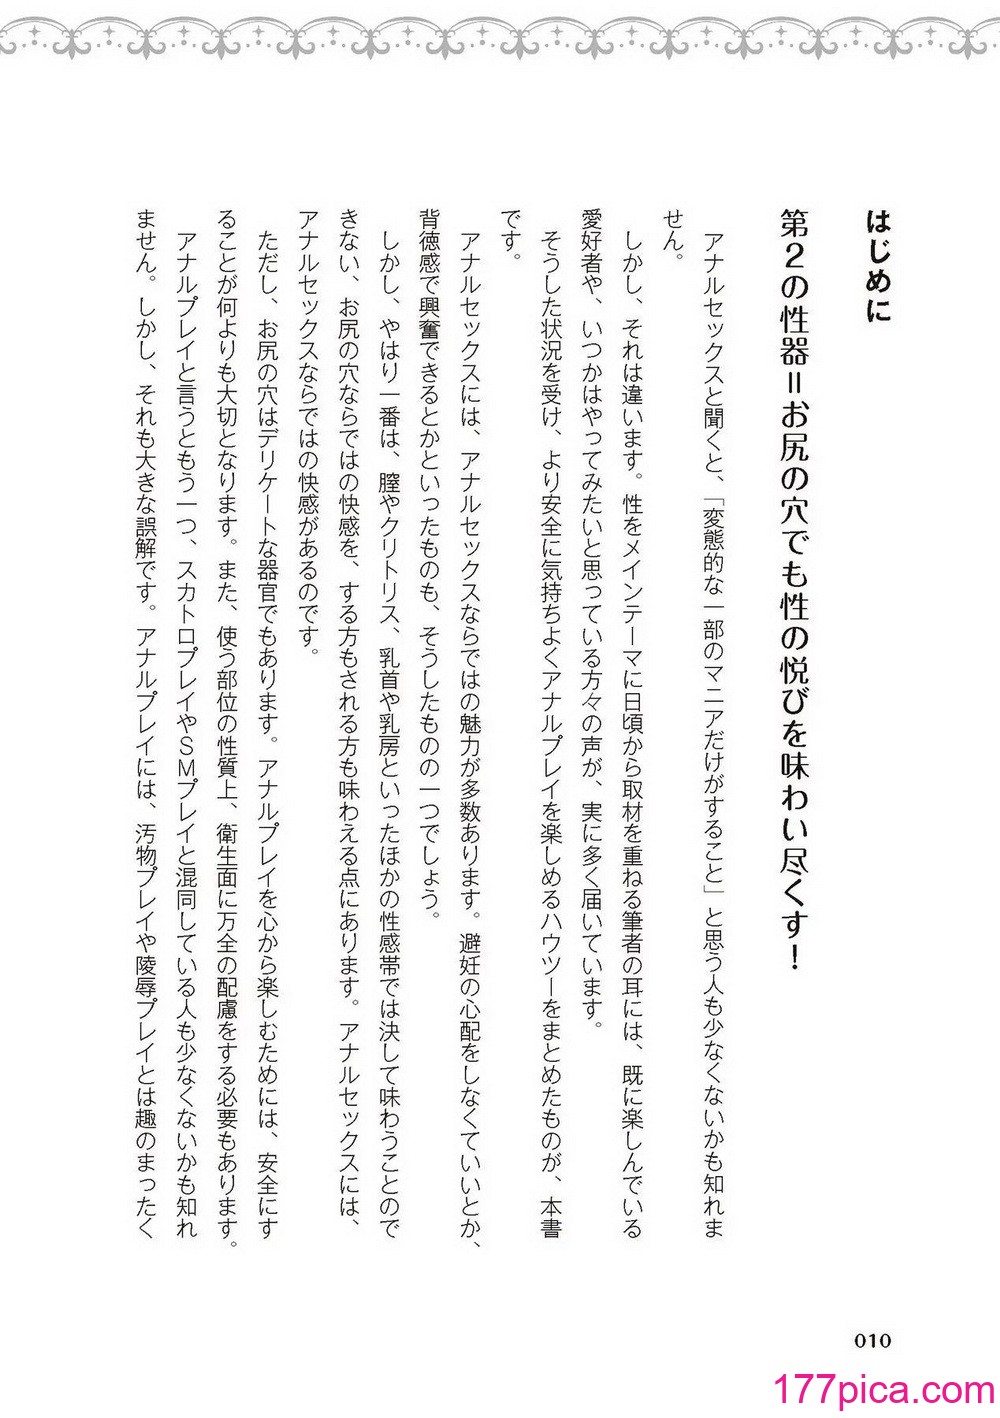 はじめに
第2の性器＝お尻の穴でも性の悦びを味わい尽くす！
アナルセックスと聞くと、「変態的な一部のマニアだけがすること」と思う人も少なくないかも知れま
せん。
しかし、それは違います。性をメインテーマに日頃から取材を重ねる筆者の耳には、既に楽しんでいる
愛好者や、いつかはやってみたいと思っている方々の声が、実に多く届いています。
そうした状況を受け、より安全に気持ちよくアナルプレイを楽しめるハウツーをまとめたものが、本書
です。
アナルセックスには、アナルセックスならではの魅力が多数あります。避妊の心配をしなくていいとか、
背徳感で興奮できるとかといったものも、そうしたものの一つでしょう。
しかし、やはり一番は、膣やクリトリス、乳首や乳房といったほかの性感帯では決して味わうことので
きない、お尻の穴ならではの快感を、する方もされる方も味わえる点にあります。アナルセックスには、
アナルセックスならではの快感があるのです。
ただし、お尻の穴はデリケートな器官でもあります。アナルプレイを心から楽しむためには、安全にす
ることが何よりも大切となります。また、使う部位の性質上、衛生面に万全の配慮をする必要もあります。
アナルプレイと言うともう一つ、スカトロプレイやSMプレイと混同している人も少なくないかも知れ
ません。しかし、それも大きな誤解です。アナルプレイには、汚物プレイや陵辱プレイとは趣のまったく
010
177pica.com